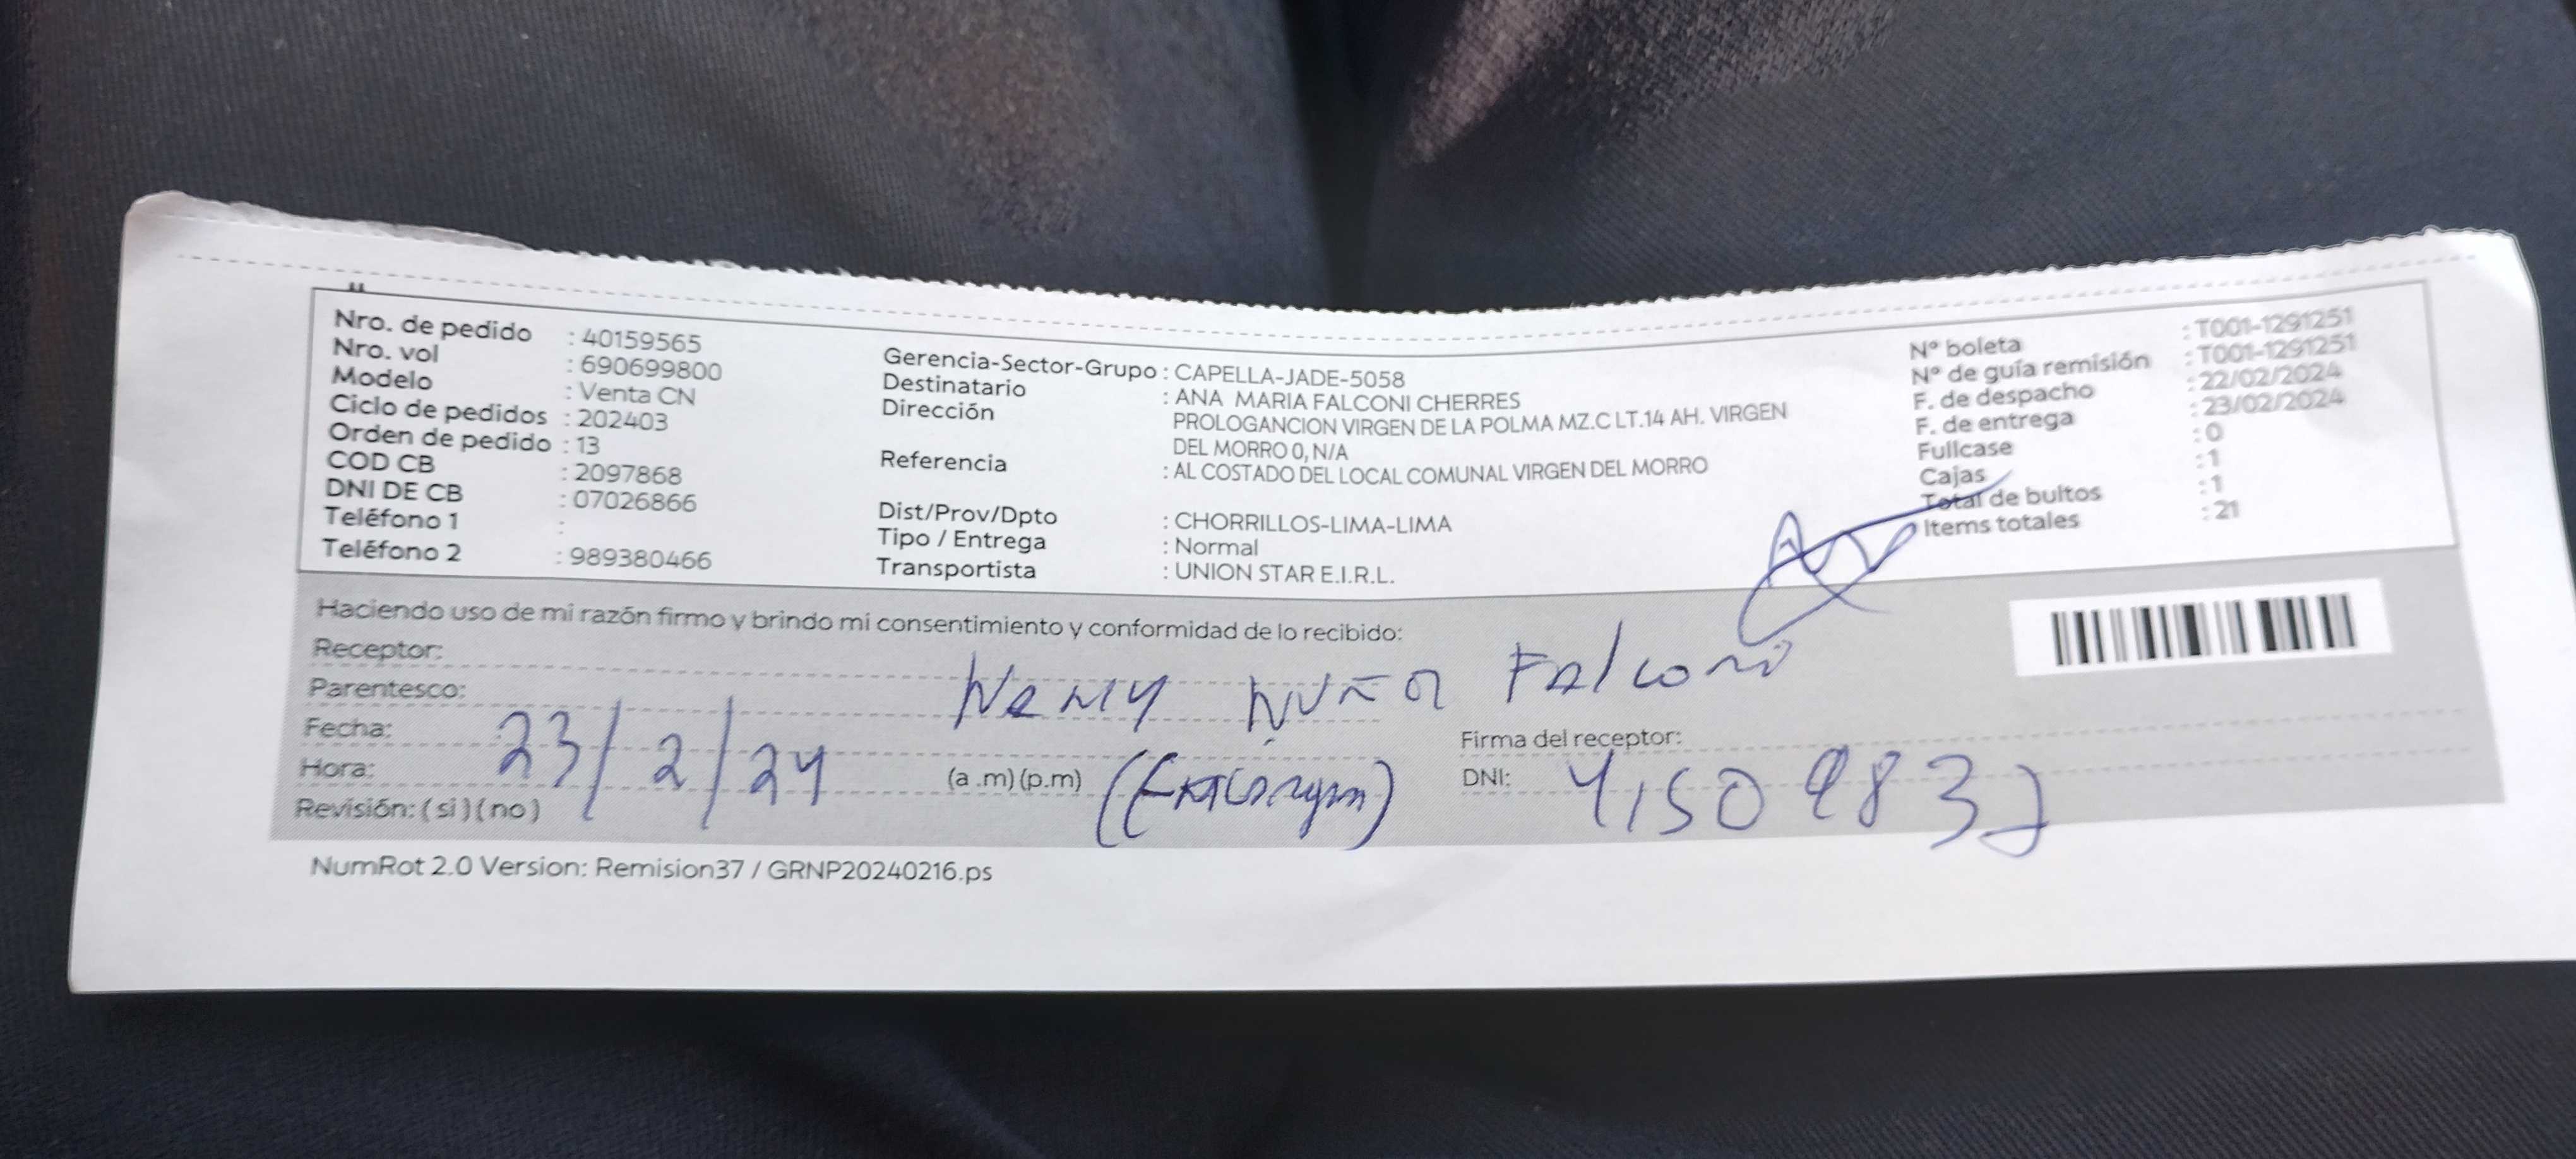 Nro. de pedido : 40159565
Nro. vol : 690699800
Modelo : Venta CN
Ciclo de pedidos : 202403
Orden de pedido : 13
COD CB : 2097868
DNI DE CB : 07026866
Teléfono 1 :
Teléfono 2 : 989380466
Gerencia-Sector-Grupo : CAPELLA-JADE-5058
Destinatario : ANA MARIA FALCONI CHERRES
Dirección PROLOGANCION VIRGEN DE LA POLMA MZ.C LT.14 AH. VIRGEN
DEL MORRO 0, N/A
Referencia : AL COSTADO DEL LOCAL COMUNAL VIRGEN DEL MORRO
Dist/Prov/Dpto : CHORRILLOS-LIMA-LIMA
Tipo / Entrega : Normal
Transportista : UNION STAR E.I.R.L.
Nº boleta : T001-1291251
Nº de guía remisión : T001-1291251
F. de despacho : 22/02/2024
F. de entrega : 23/02/2024
Fullcase : 0
Cajas : 1
Total de bultos : 1
Items totales : 21
Haciendo uso de mi razón firmo y brindo mi consentimiento y conformidad de lo recibido:
Receptor:
Parentesco: Falconi
Fecha: 23/2/24
Firma del receptor:
Hora: (a .m) (p.m)
DNI:
Revisión: ( si ) ( no )
NumRot 2.0 Version: Remision37 / GRNP20240216.ps